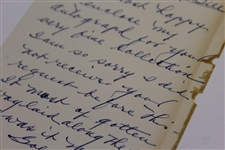 happy
enclose my
autograph for your
very fine collection
I am so sorry I did
not receive your
request before this
It must of gotten
mislaid along the
was it